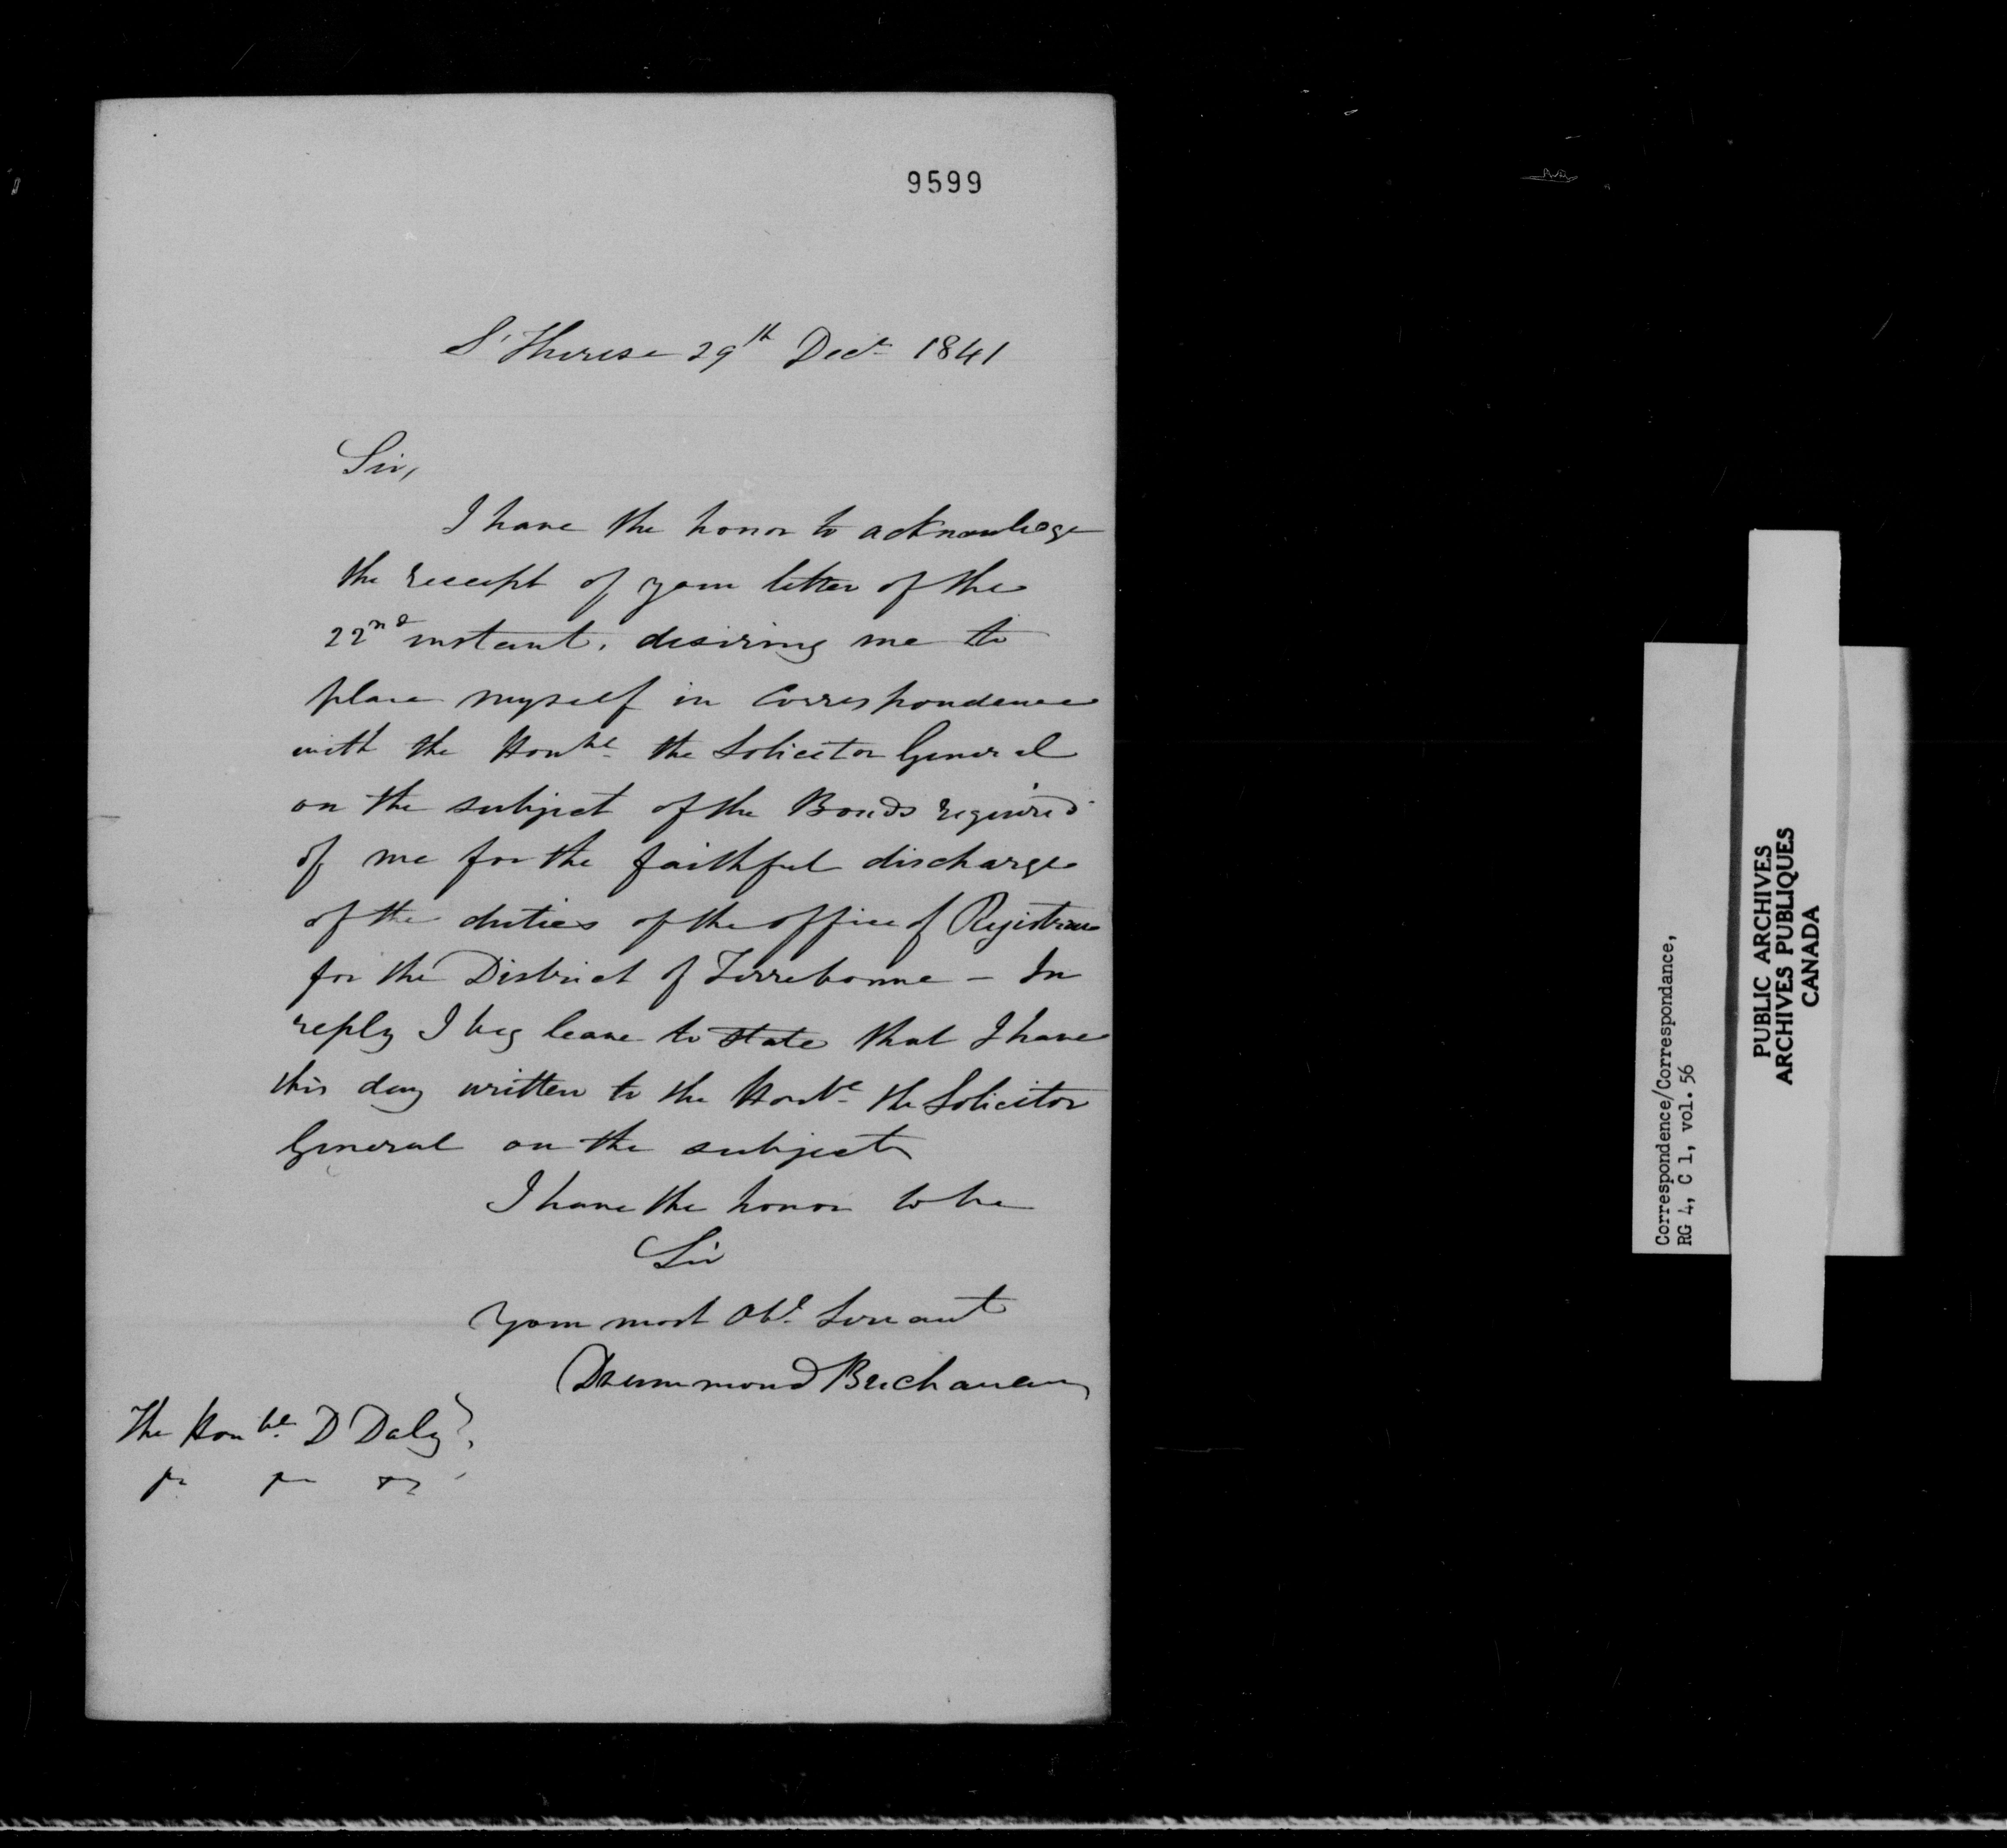 9599
St Therese 29th Decr 1841
Sir,
I have the honor to acknowledge
the receipt of your letter of the
22nd instant, desiring me to
place myself in correspondence
with the Honble the Solicitor General
on the subject of the Bonds required
of me for the faithful discharge
of the duties of the office of Registrar
for the District of Terrebonne - In
reply I beg leave to state that I have
this day written to the Honble the Solicitor
General on the subject
I have the honor to be
Sir
Your most Obt Servant
Drummond Buchanan
The Honble D Daly
Correspondence/Correspondance,
RG 4, C 1, vol. 56
PUBLIC ARCHIVES
ARCHIVES PUBLIQUES
CANADA